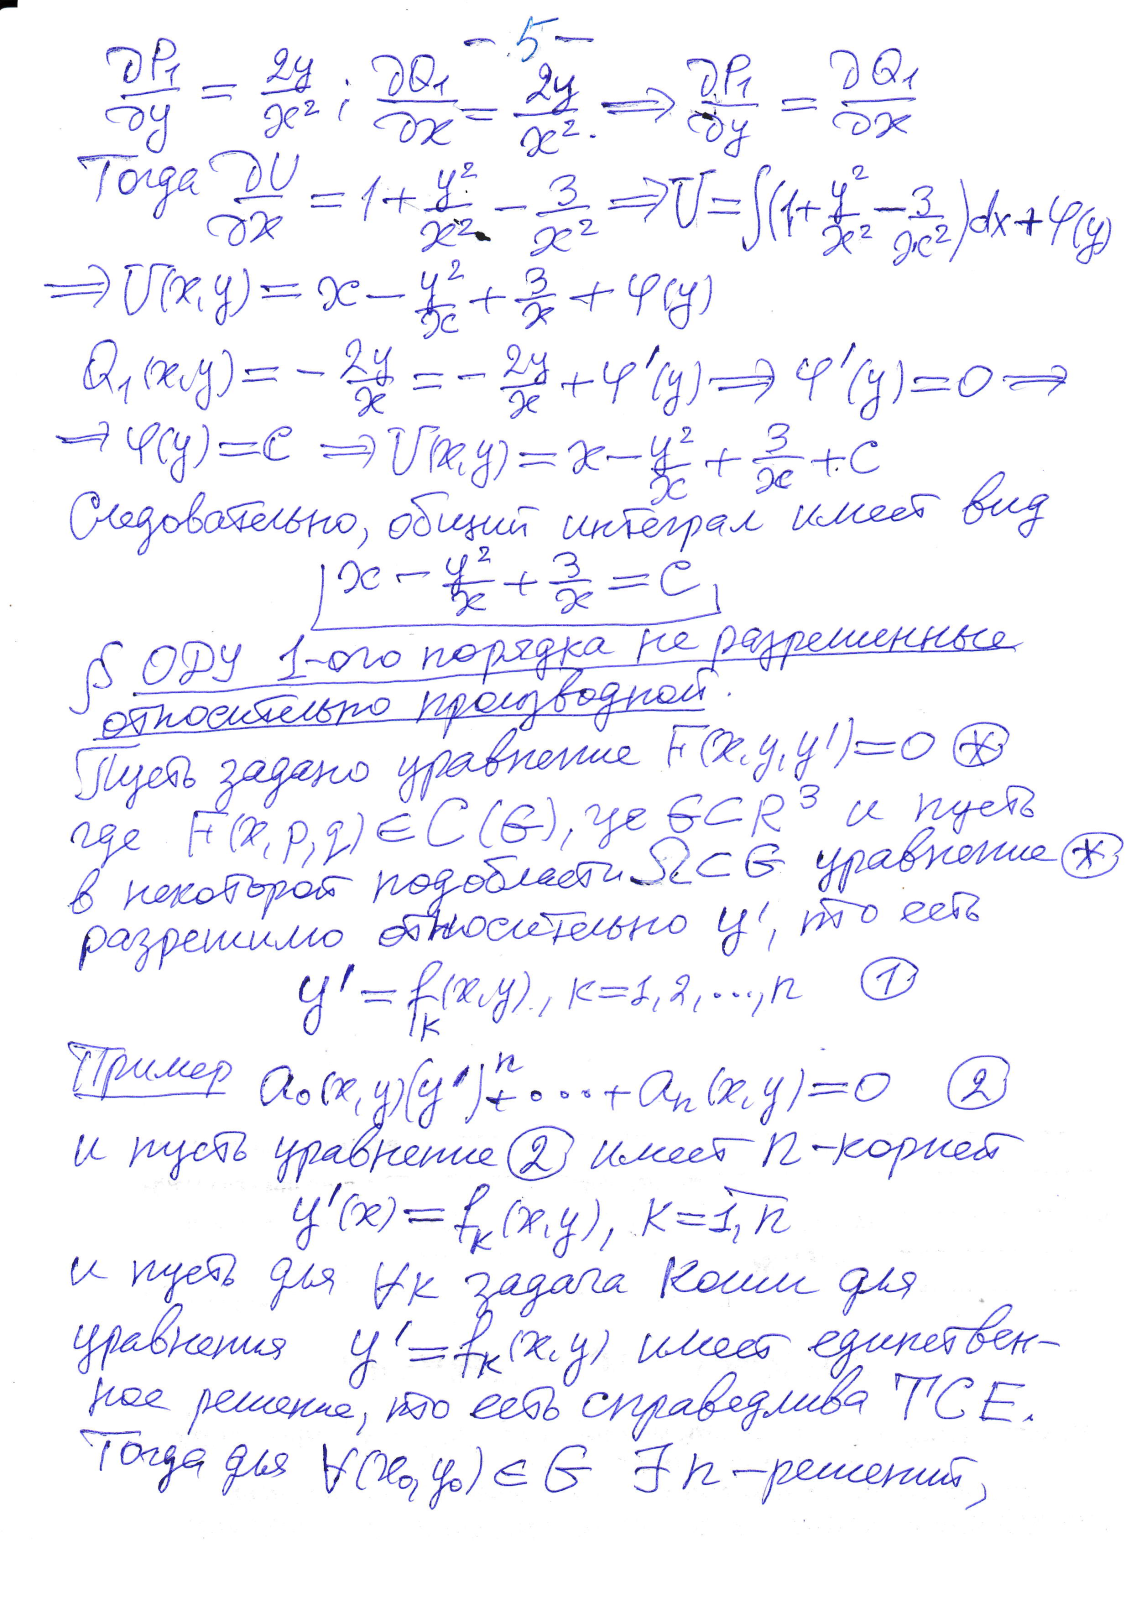 - 5 -
∂P₁/∂y = 2y/x² ; ∂Q₁/∂x = 2y/x². ⟹ ∂P₁/∂y = ∂Q₁/∂x
Тогда ∂U/∂x = 1 + y²/x² - 3/x² ⟹ U = ∫(1 + y²/x² - 3/x²)dx + φ(y)
⟹ U(x,y) = x - y²/x + 3/x + φ(y)
Q₁(x,y) = - 2y/x = - 2y/x + φ'(y) ⟹ φ'(y) = 0 ⟹
⟹ φ(y) = C ⟹ U(x,y) = x - y²/x + 3/x + C
Следовательно, общий интеграл имеет вид
x - y²/x + 3/x = C
§ ОДУ 1-ого порядка не разрешенные
относительно производной.
Пусть задано уравнение F(x,y,y') = 0 (*)
где F(x,p,q) ∈ C(G), где G⊂R³ и пусть
в некоторой подобласти Ω⊂G уравнение (*)
разрешимо относительно y', то есть
y' = fₖ(x,y), k=1,2,...,n (1)
Пример a₀(x,y)(y')ⁿ + ... + aₙ(x,y) = 0 (2)
и пусть уравнение (2) имеет n-корней
y'(x) = fₖ(x,y), k = 1,n
и пусть для ∀k задача Коши для
уравнения y' = fₖ(x,y) имеет единствен-
ное решение, то есть справедлива ТСЕ.
Тогда для ∀(x₀,y₀) ∈ G ∃ n-решений,